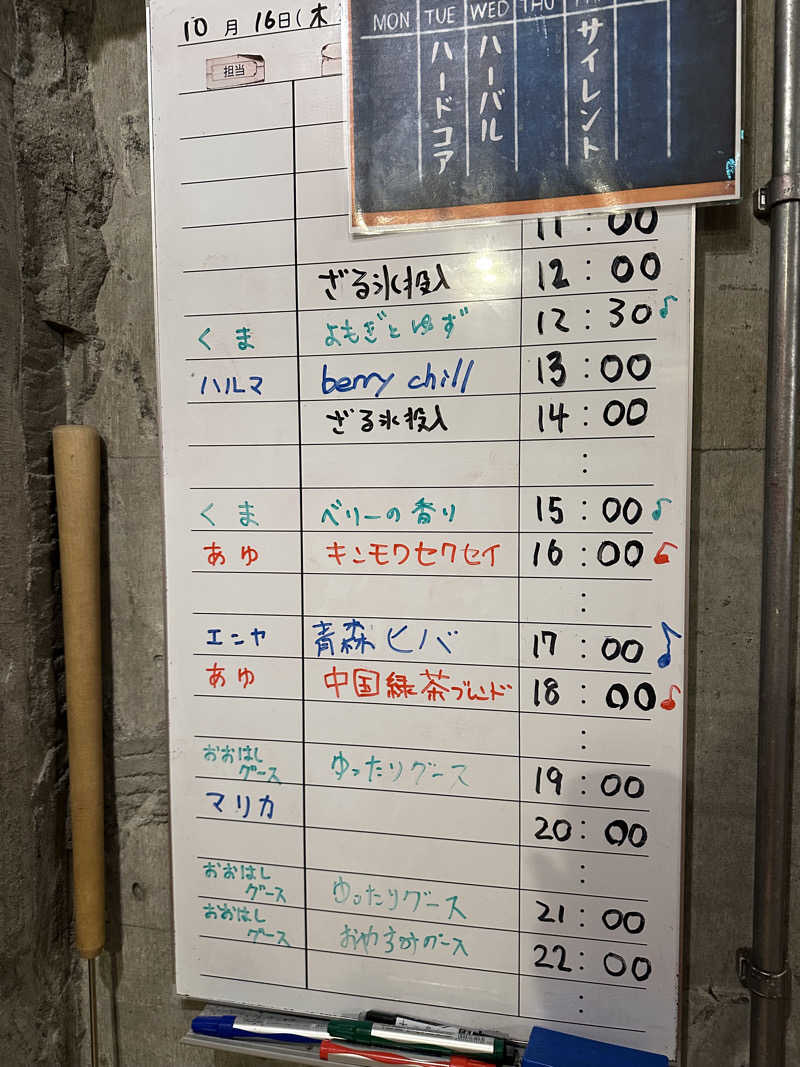 10月16日(木
担当
MON TUE WED THU
ハードコア
ハーバル
サイレント
11:00
ざる氷投入 12:00
くま よもぎとゆず 12:30♪
ハルマ berry chill 13:00
ざる氷投入 14:00
:
くま ベリーの香り 15:00♪
あゆ キンモクセクセイ 16:00♪
:
エンヤ 青森ヒバ 17:00♪
あゆ 中国緑茶ブレンド 18:00♪
:
おおはしグース ゆったりグース 19:00
マリカ 20:00
:
おおはしグース ゆったりグース 21:00
おおはしグース おやすみグース 22:00
: